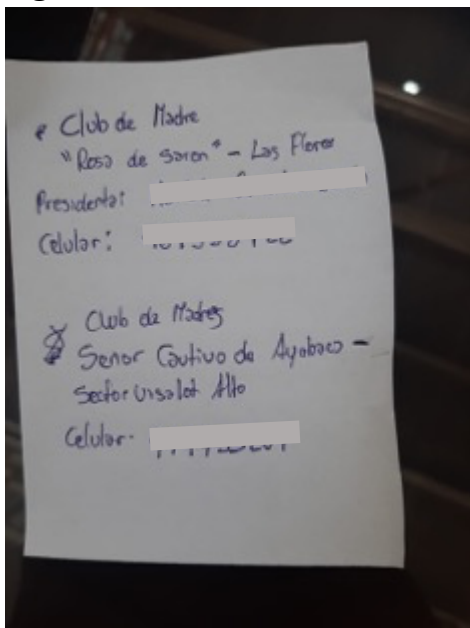 Club de Madre
"Rosa de Saron" - Las Flores
Presidenta:
Celular:
Club de Madres
Señor Cautivo de Ayabaca -
Sector Visalot Alto
Celular.